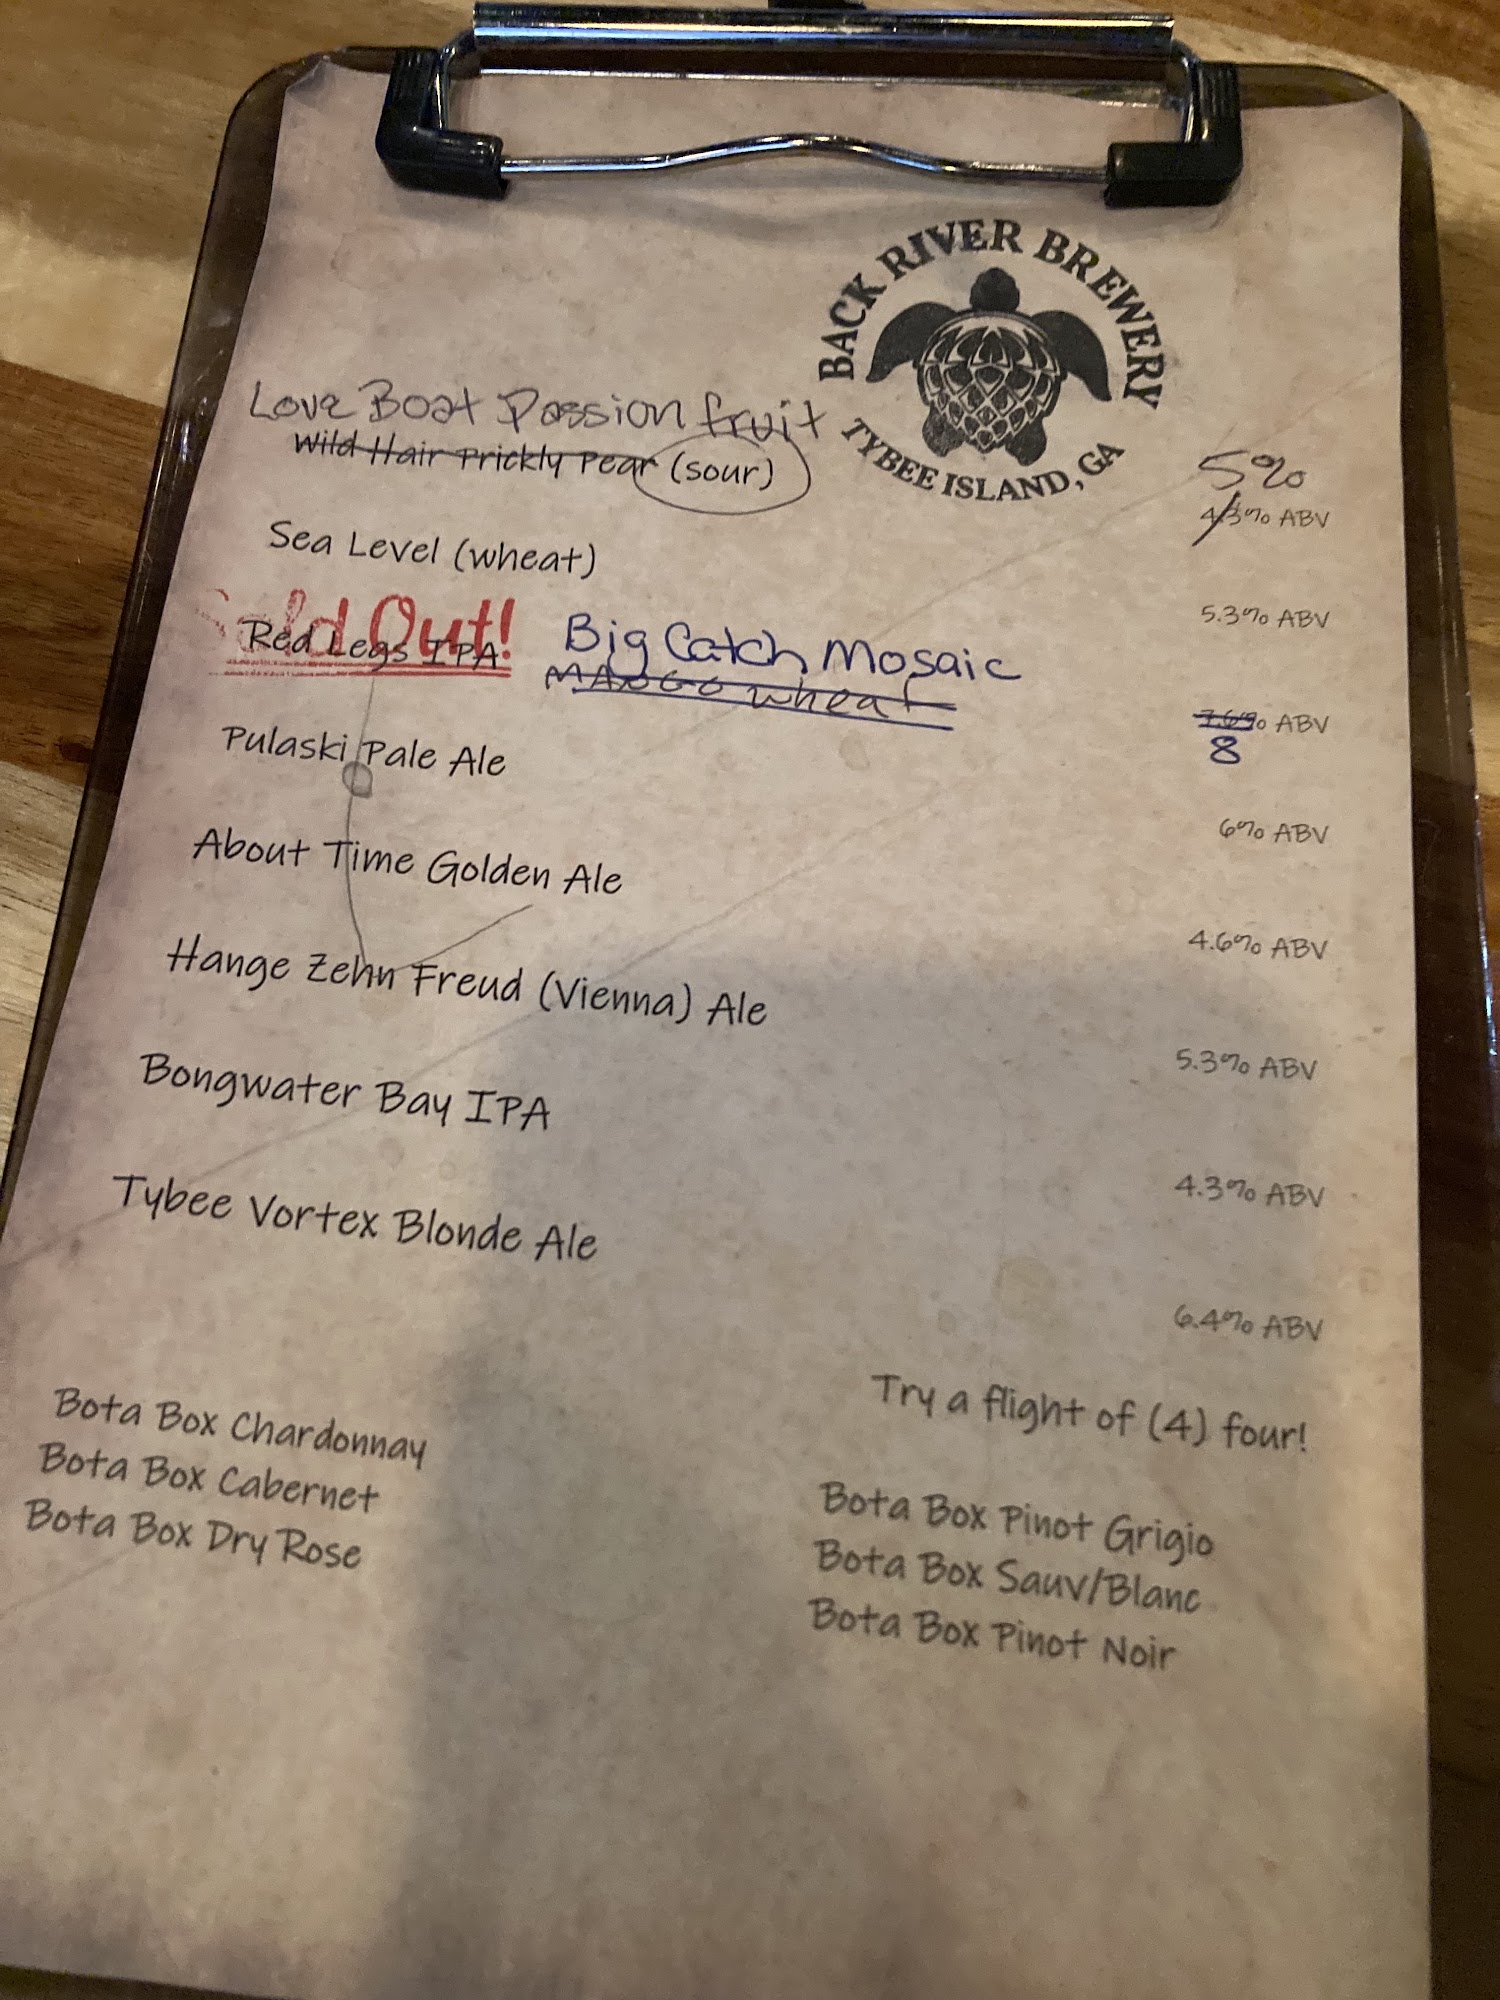 BACK RIVER BREWERY
TYBEE ISLAND, GA
Love Boat Passion fruit
Wild Hair Prickly Pear (sour)
5%
4.3% ABV
Sea Level (wheat)
5.3% ABV
Sold Out!
Red Legs IPA
Big Catch Mosaic
MANGO wheat
7.6% ABV
8
Pulaski Pale Ale
6% ABV
About Time Golden Ale
4.6% ABV
Hange Zehn Freud (Vienna) Ale
5.3% ABV
Bongwater Bay IPA
4.3% ABV
Tybee Vortex Blonde Ale
6.4% ABV
Try a flight of (4) four!
Bota Box Chardonnay
Bota Box Cabernet
Bota Box Dry Rose
Bota Box Pinot Grigio
Bota Box Sauv/Blanc
Bota Box Pinot Noir